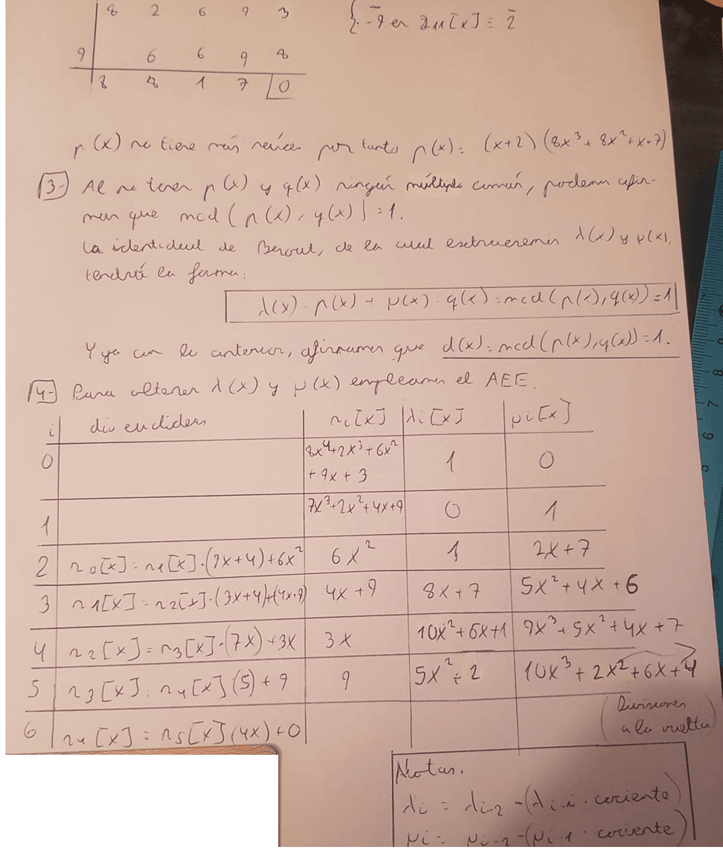 8 2 6 9 3
{: -9 en Z11[x] = 2̄
9 6 6 9 8
8 8 1 7 0
p(x) no tiene más raíces por tanto p(x) = (x+2)(8x³+8x²+x+7)
3- Al no tener p(x) y q(x) ningún múltiplo común, podemos afir-
mar que mcd(p(x), q(x)) = 1.
La identidad de Bezout, de la cual extraeremos λ(x) y μ(x),
tendrá la forma:
λ(x)·p(x) + μ(x)·q(x) = mcd(p(x),q(x)) = 1
Y ya con lo anterior, afirmamos que d(x) = mcd(p(x),q(x)) = 1.
4- Para obtener λ(x) y μ(x) empleamos el AEE.
i div euclidea ri[x] λi[x] μi[x]
0 8x⁴+2x³+6x²+9x+3 1 0
1 7x³+2x²+4x+9 0 1
2 r0[x] = r1[x]·(9x+4)+6x² 6x² 1 2x+7
3 r1[x] = r2[x]·(3x+4)+(4x+9) 4x+9 8x+7 5x²+4x+6
4 r2[x] = r3[x]·(7x)+3x 3x 10x²+6x+1 9x³+5x²+4x+7
5 r3[x] = r4[x](5)+9 9 5x²+2 10x³+2x²+6x+4
6 r4[x] = r5[x](4x)+0
(Divisiones
a la vuelta)
Notas.
λi = λi-2 - (λi-1 · cociente)
μi = μi-2 - (μi-1 · cociente)